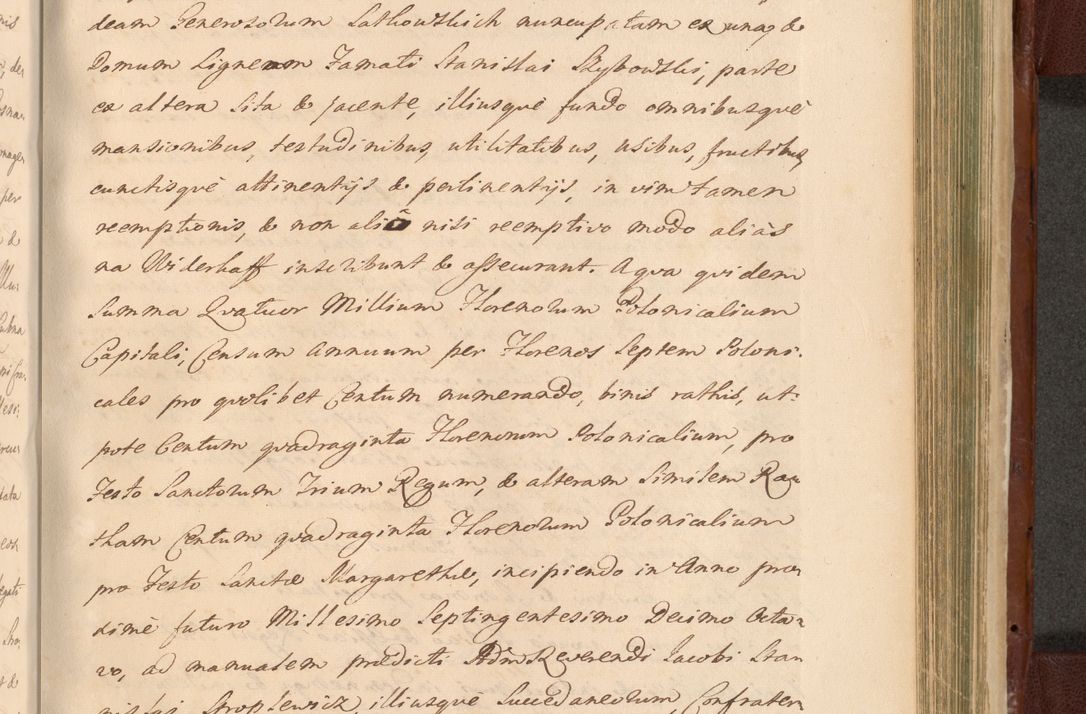 deam Generosorum Latkowskich nuncupatam ex una, &
Domum Ligneam Famati Stanislai Szybowski, parte
ex altera sita & jacente, illiusquè fundo omnibusquè
mansionibus, testudinibus, utilitatibus, usibus, fructibus,
cunctisquè attinentijs & pertinentijs, in vim tamen
reemptionis, & non aliô nisi reemptivo modo aliàs
na Widerkaff inscribunt & assecurant. A qua quidem
Summa Qvatuor Millium Florenorum Polonicalium
Capitali, Censum Annuum per Florenos Septem Poloni-
cales pro quolibet Centum numerando, binis rathis, ut-
pote Centum quadraginta Florenorum Polonicalium, pro
Festo Sanctorum Trium Regum, & alteram Similem Ra-
tham Centum quadraginta Florenorum Polonicalium
pro Festo Sanctæ Margarethæ, incipiendo in Anno pro-
ximè futuro Millesimo Septingentesimo Decimo Octa-
vo, ad manualem prædicti Adm Reverendi Jacobi Stan
nislai Stoplewicz, illiusquè Succedaneorum, Confrater